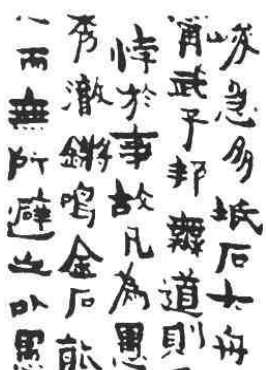 峻急多坻石大舟
甯武子邦無道則
悖於事故凡為愚
秀澈鏘鳴金石能
而無所避之以愚